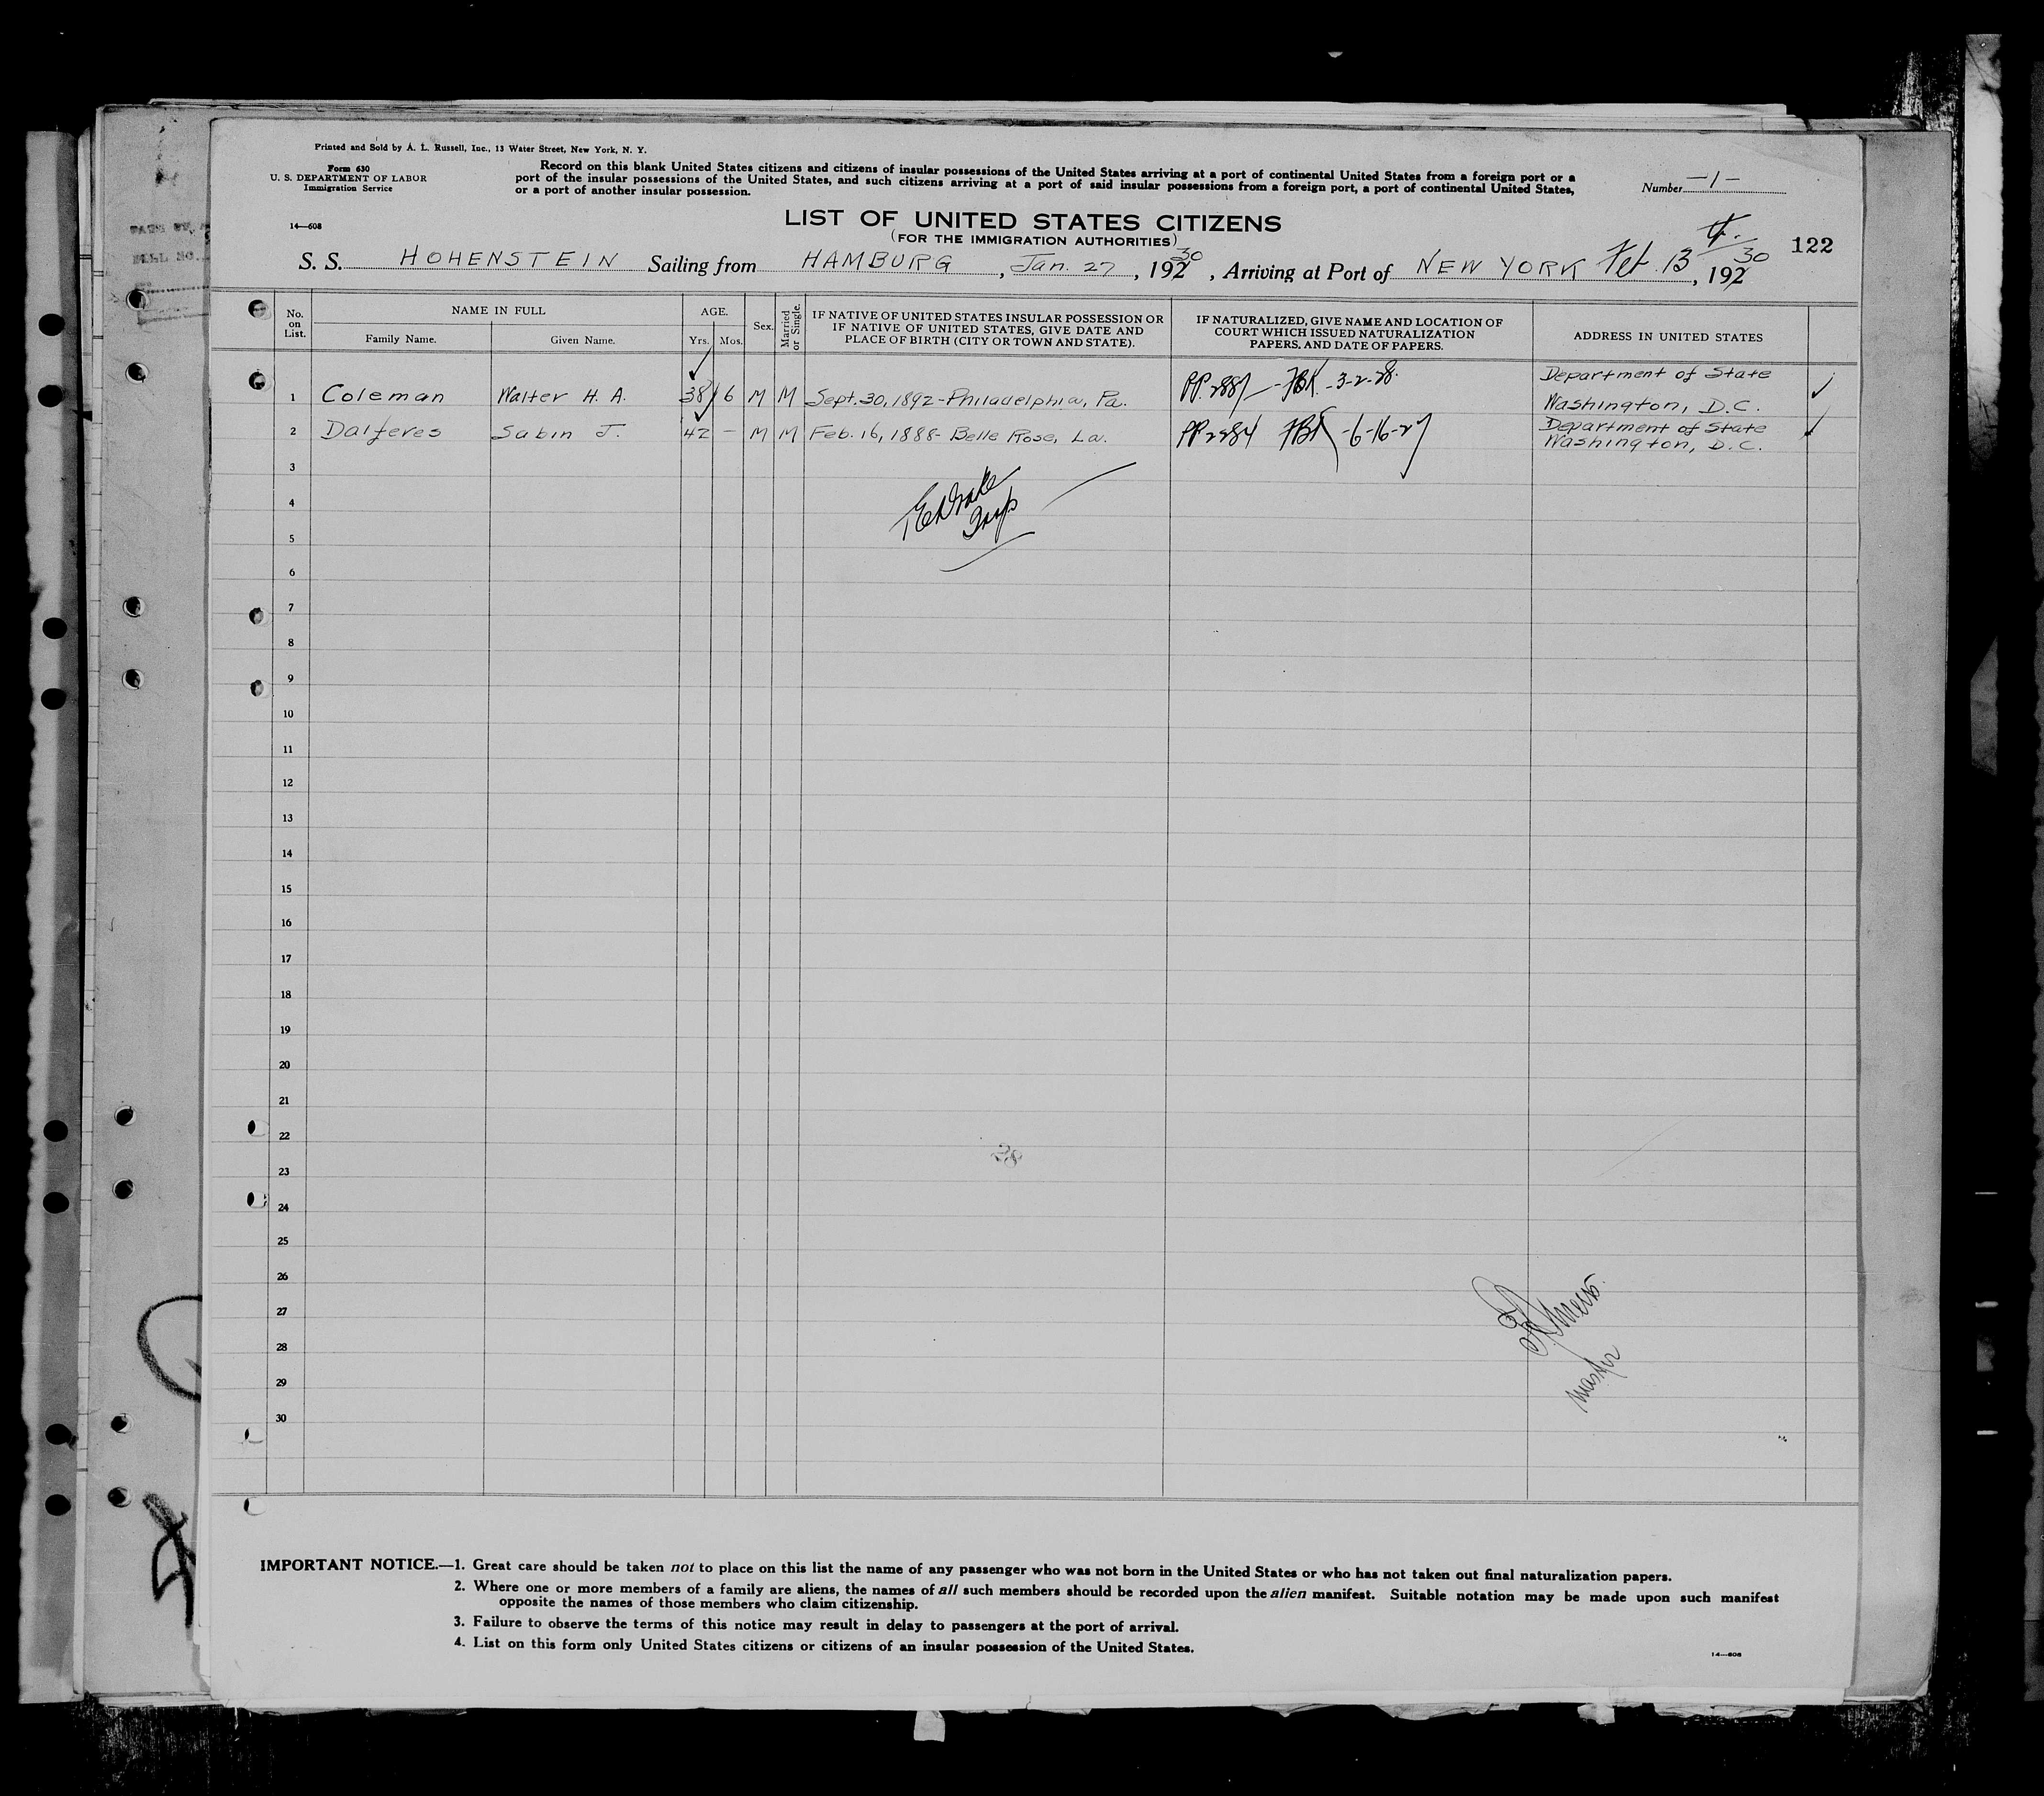 Printed and Sold by A. L. Russell, Inc., 13 Water Street, New York, N. Y.
Form 630
U. S. DEPARTMENT OF LABOR
Immigration Service
Record on this blank United States citizens and citizens of insular possessions of the United States arriving at a port of continental United States from a foreign port or a
port of the insular possessions of the United States, and such citizens arriving at a port of said insular possessions from a foreign port, a port of continental United States,
or a port of another insular possession.
Number -1-
14-608
LIST OF UNITED STATES CITIZENS
(FOR THE IMMIGRATION AUTHORITIES)
122
S. S. HOHENSTEIN Sailing from HAMBURG, Jan. 27, 1930, Arriving at Port of NEW YORK Feb. 13, 1930
No. on List. NAME IN FULL AGE. Sex. Married or Single.
Family Name. Given Name. Yrs. Mos.
IF NATIVE OF UNITED STATES INSULAR POSSESSION OR
IF NATIVE OF UNITED STATES, GIVE DATE AND
PLACE OF BIRTH (CITY OR TOWN AND STATE).
IF NATURALIZED, GIVE NAME AND LOCATION OF
COURT WHICH ISSUED NATURALIZATION
PAPERS, AND DATE OF PAPERS.
ADDRESS IN UNITED STATES
1 Coleman Walter H. A. 38 6 M M Sept. 30, 1892-Philadelphia, Pa. PP. 2887 - 3-2-28. Department of State
Washington, D.C.
2 Dalferes Sabin J. 42 - M M Feb. 16, 1888- Belle Rose, La. PP 2284 -6-16-27 Department of State
Washington, D.C.
3
4
5
6
7
8
9
10
11
12
13
14
15
16
17
18
19
20
21
22
23
24
25
26
27
28
29
30
master
IMPORTANT NOTICE.—1. Great care should be taken not to place on this list the name of any passenger who was not born in the United States or who has not taken out final naturalization papers.
2. Where one or more members of a family are aliens, the names of all such members should be recorded upon the alien manifest. Suitable notation may be made upon such manifest
opposite the names of those members who claim citizenship.
3. Failure to observe the terms of this notice may result in delay to passengers at the port of arrival.
4. List on this form only United States citizens or citizens of an insular possession of the United States.
14-608